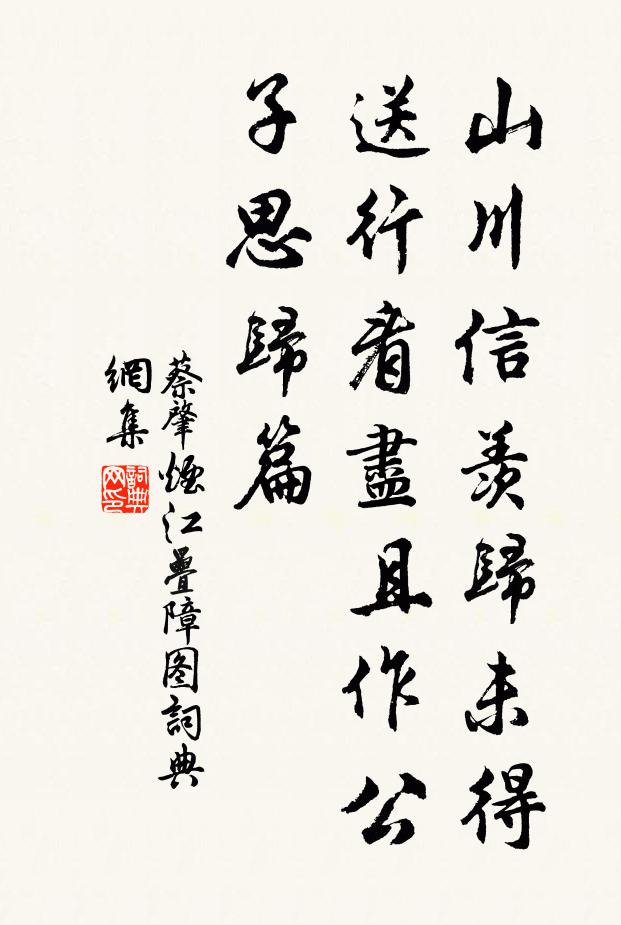 山川信羨歸未得
送行看盡且作公
子思歸篇
蔡肇煙江疊障图詞典
網集
詞典网印